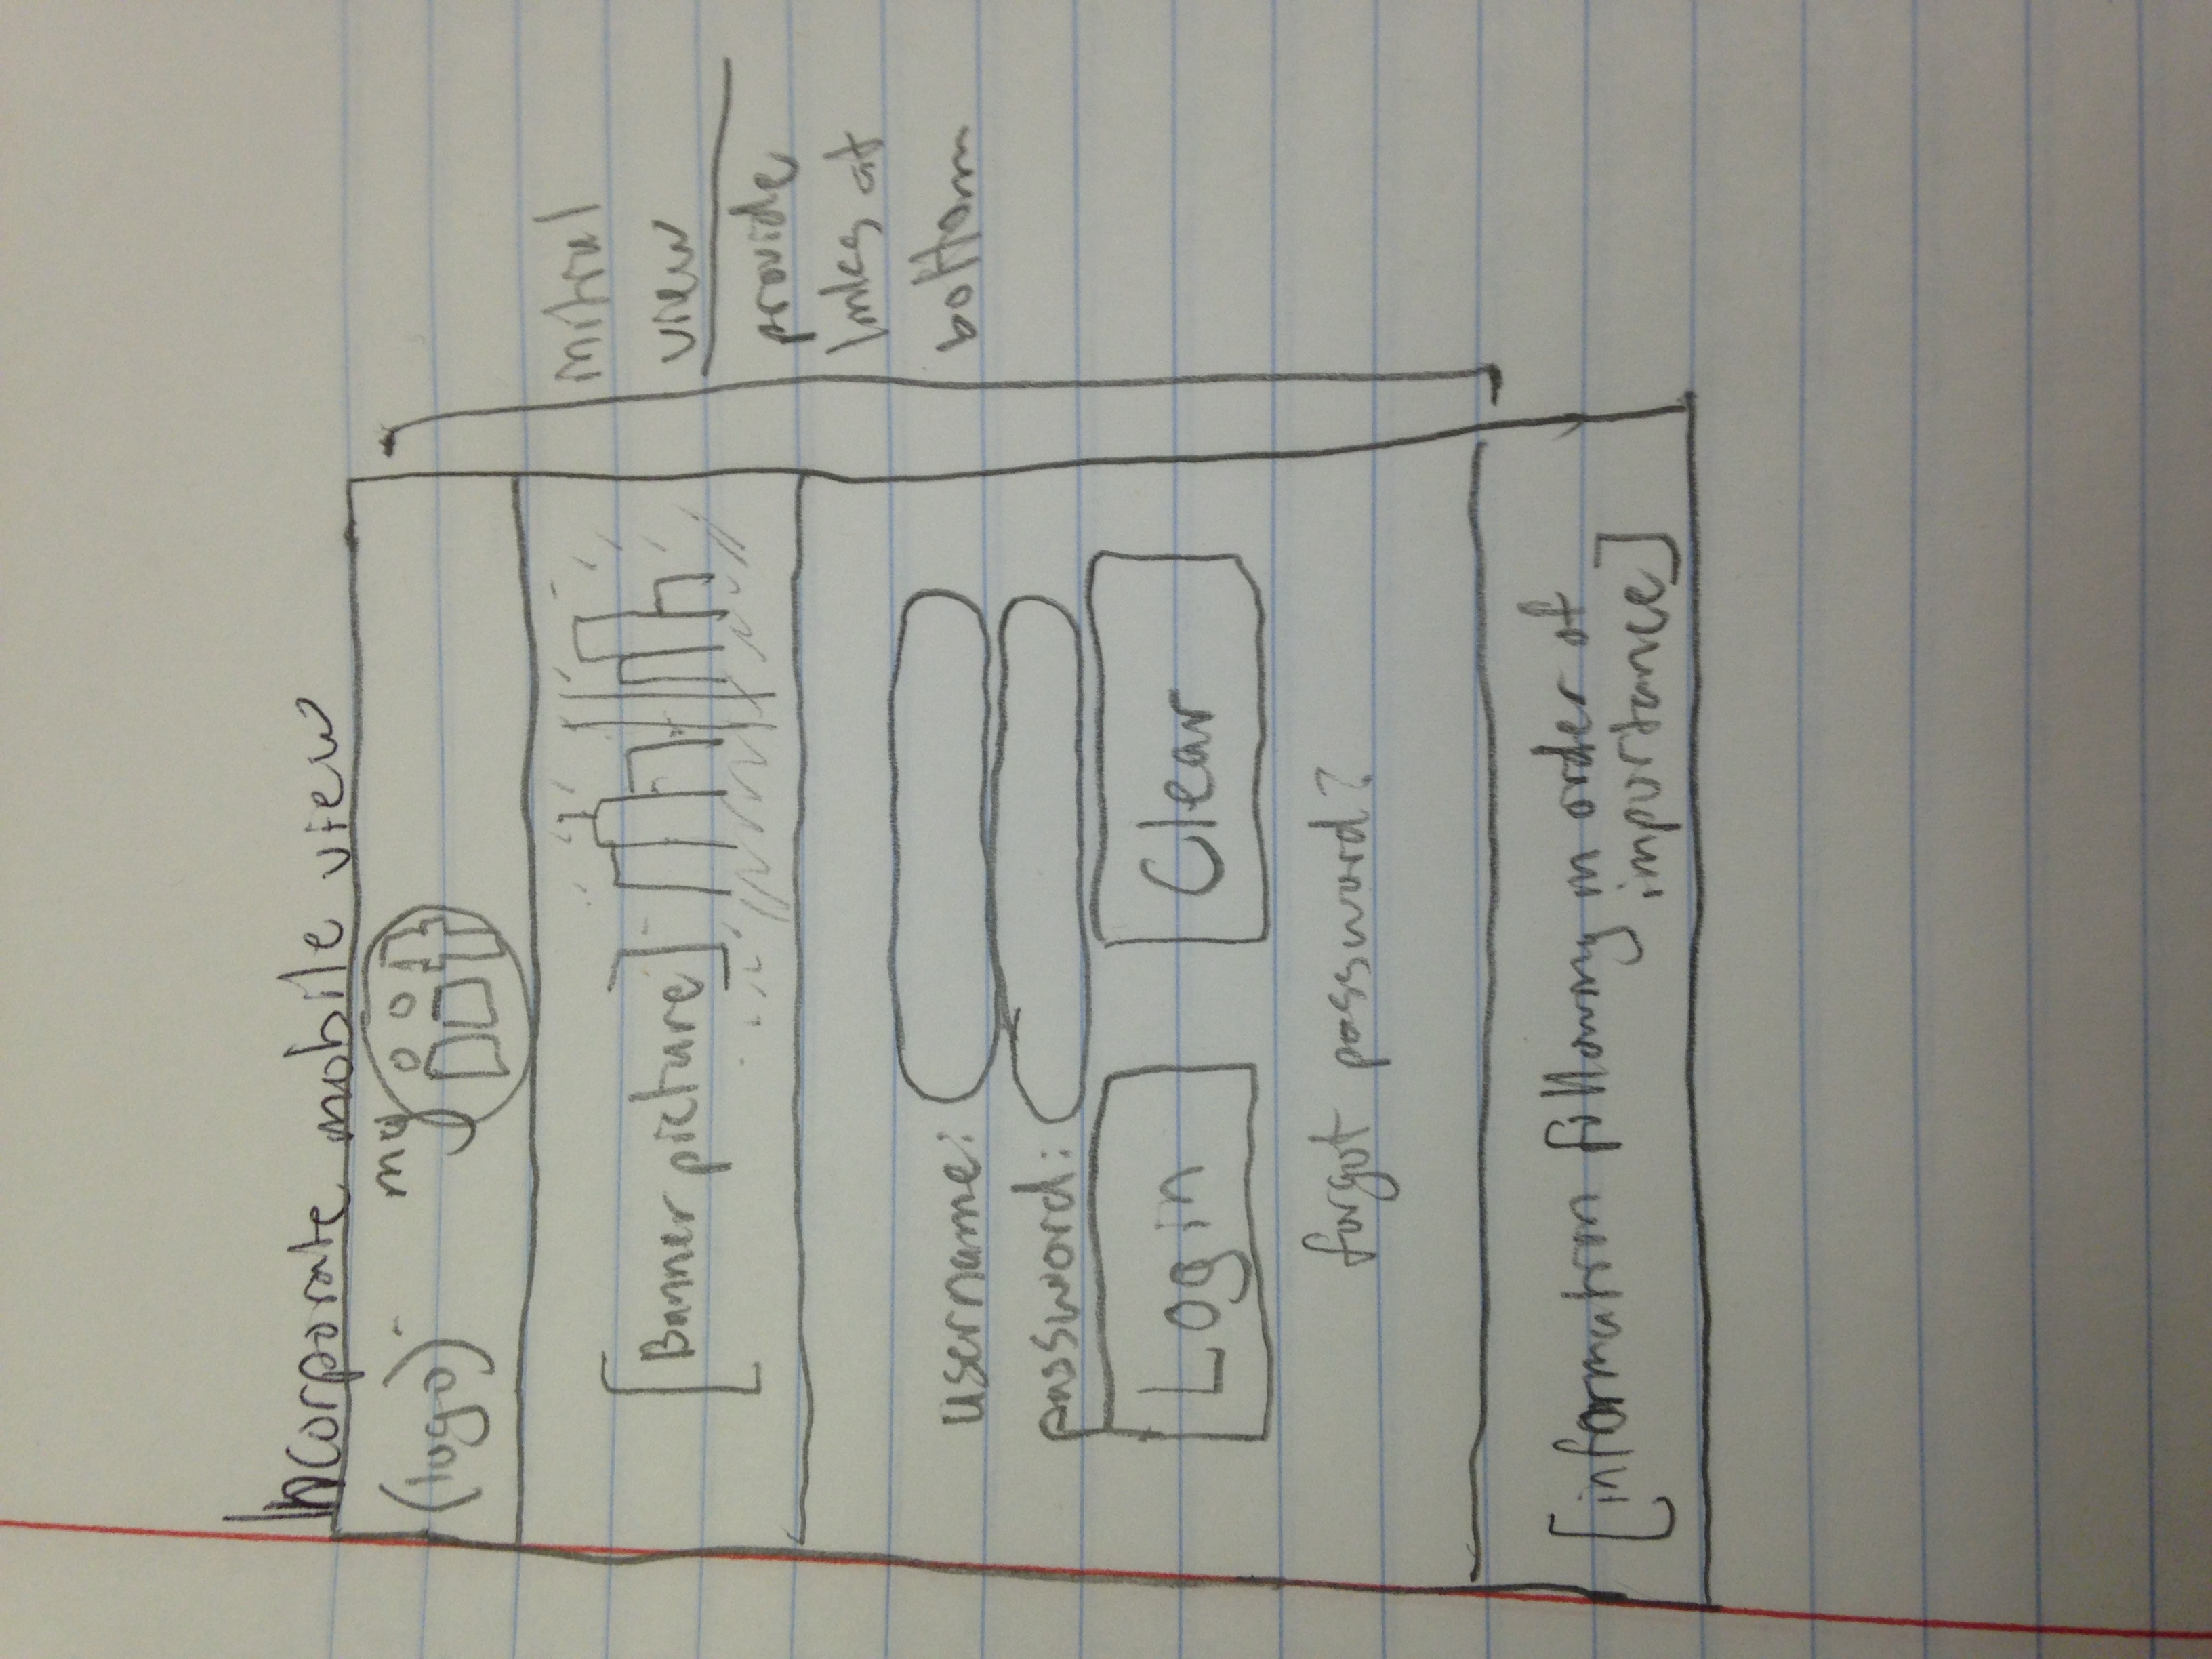 Incorporate mobile view
(logo) my
[Banner picture]
username:
password:
Login Clear
forgot password?
[information following in order of
importance]
initial
view
provide
links at
bottom